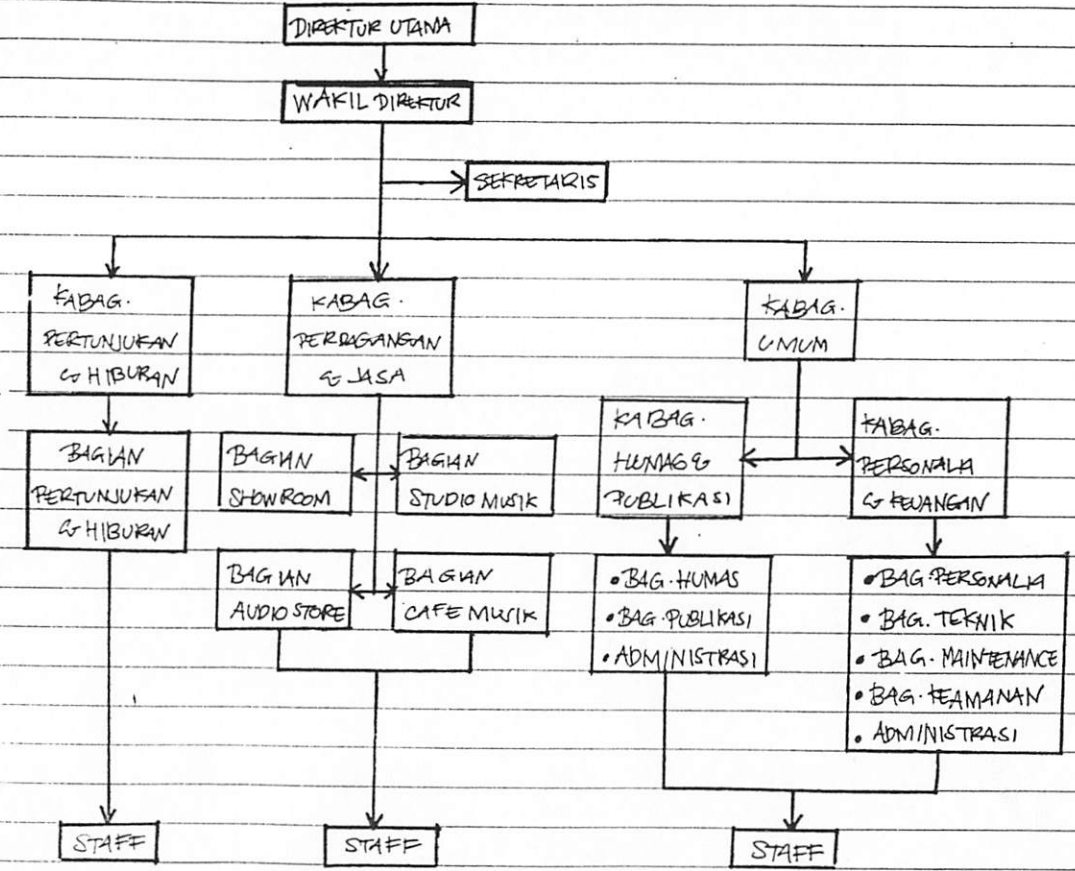 DIREKTUR UTAMA
WAKIL DIREKTUR
SEKRETARIS
KABAG.
PERTUNJUKAN
& HIBURAN
KABAG.
PERDAGANGAN
& JASA
KABAG.
UMUM
BAGIAN
PERTUNJUKAN
& HIBURAN
BAGIAN
SHOWROOM
BAGIAN
STUDIO MUSIK
KABAG.
HUMAS &
PUBLIKASI
KABAG.
PERSONALIA
& KEUANGAN
BAGIAN
AUDIO STORE
BAGIAN
CAFE MUSIK
• BAG. HUMAS
• BAG. PUBLIKASI
• ADMINISTRASI
• BAG. PERSONALIA
• BAG. TEKNIK
• BAG. MAINTENANCE
• BAG. KEAMANAN
• ADMINISTRASI
STAFF
STAFF
STAFF